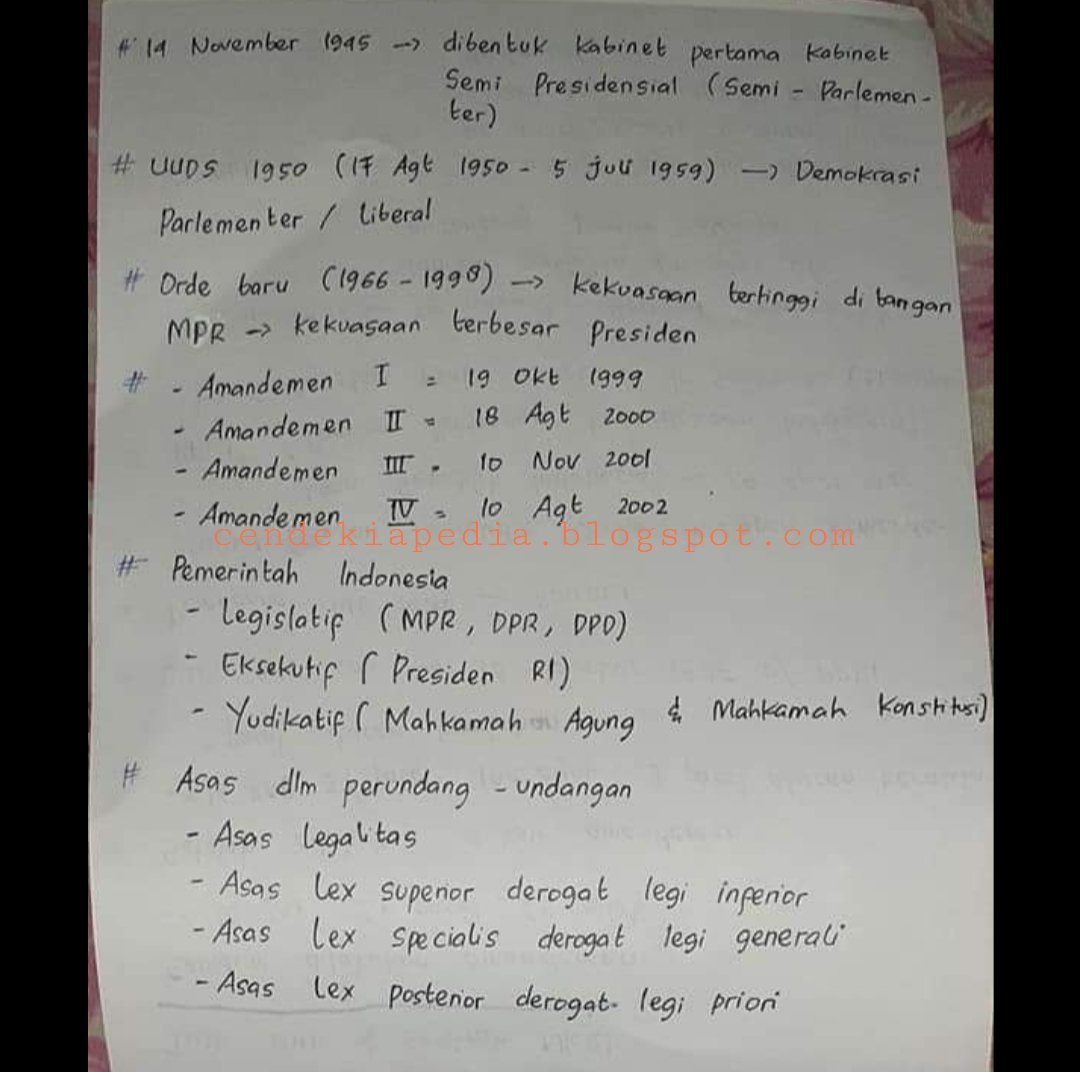 # 14 November 1945 -> dibentuk kabinet pertama kabinet
Semi Presidensial (Semi - Parlemen -
ter)
# UUDS 1950 (17 Agt 1950 - 5 juli 1959) -> Demokrasi
Parlementer / Liberal
# Orde baru (1966 - 1998) -> kekuasaan tertinggi di tangan
MPR -> kekuasaan terbesar Presiden
# - Amandemen I = 19 Okt 1999
- Amandemen II = 18 Agt 2000
- Amandemen III = 10 Nov 2001
- Amandemen IV = 10 Agt 2002
cendekiapedia.blogspot.com
# Pemerintah Indonesia
- Legislatif (MPR, DPR, DPD)
- Eksekutif (Presiden RI)
- Yudikatif (Mahkamah Agung & Mahkamah Konstitusi)
# Asas dlm perundang - undangan
- Asas Legalitas
- Asas Lex superior derogat legi inferior
- Asas Lex specialis derogat legi generali
- Asas Lex posterior derogat legi priori